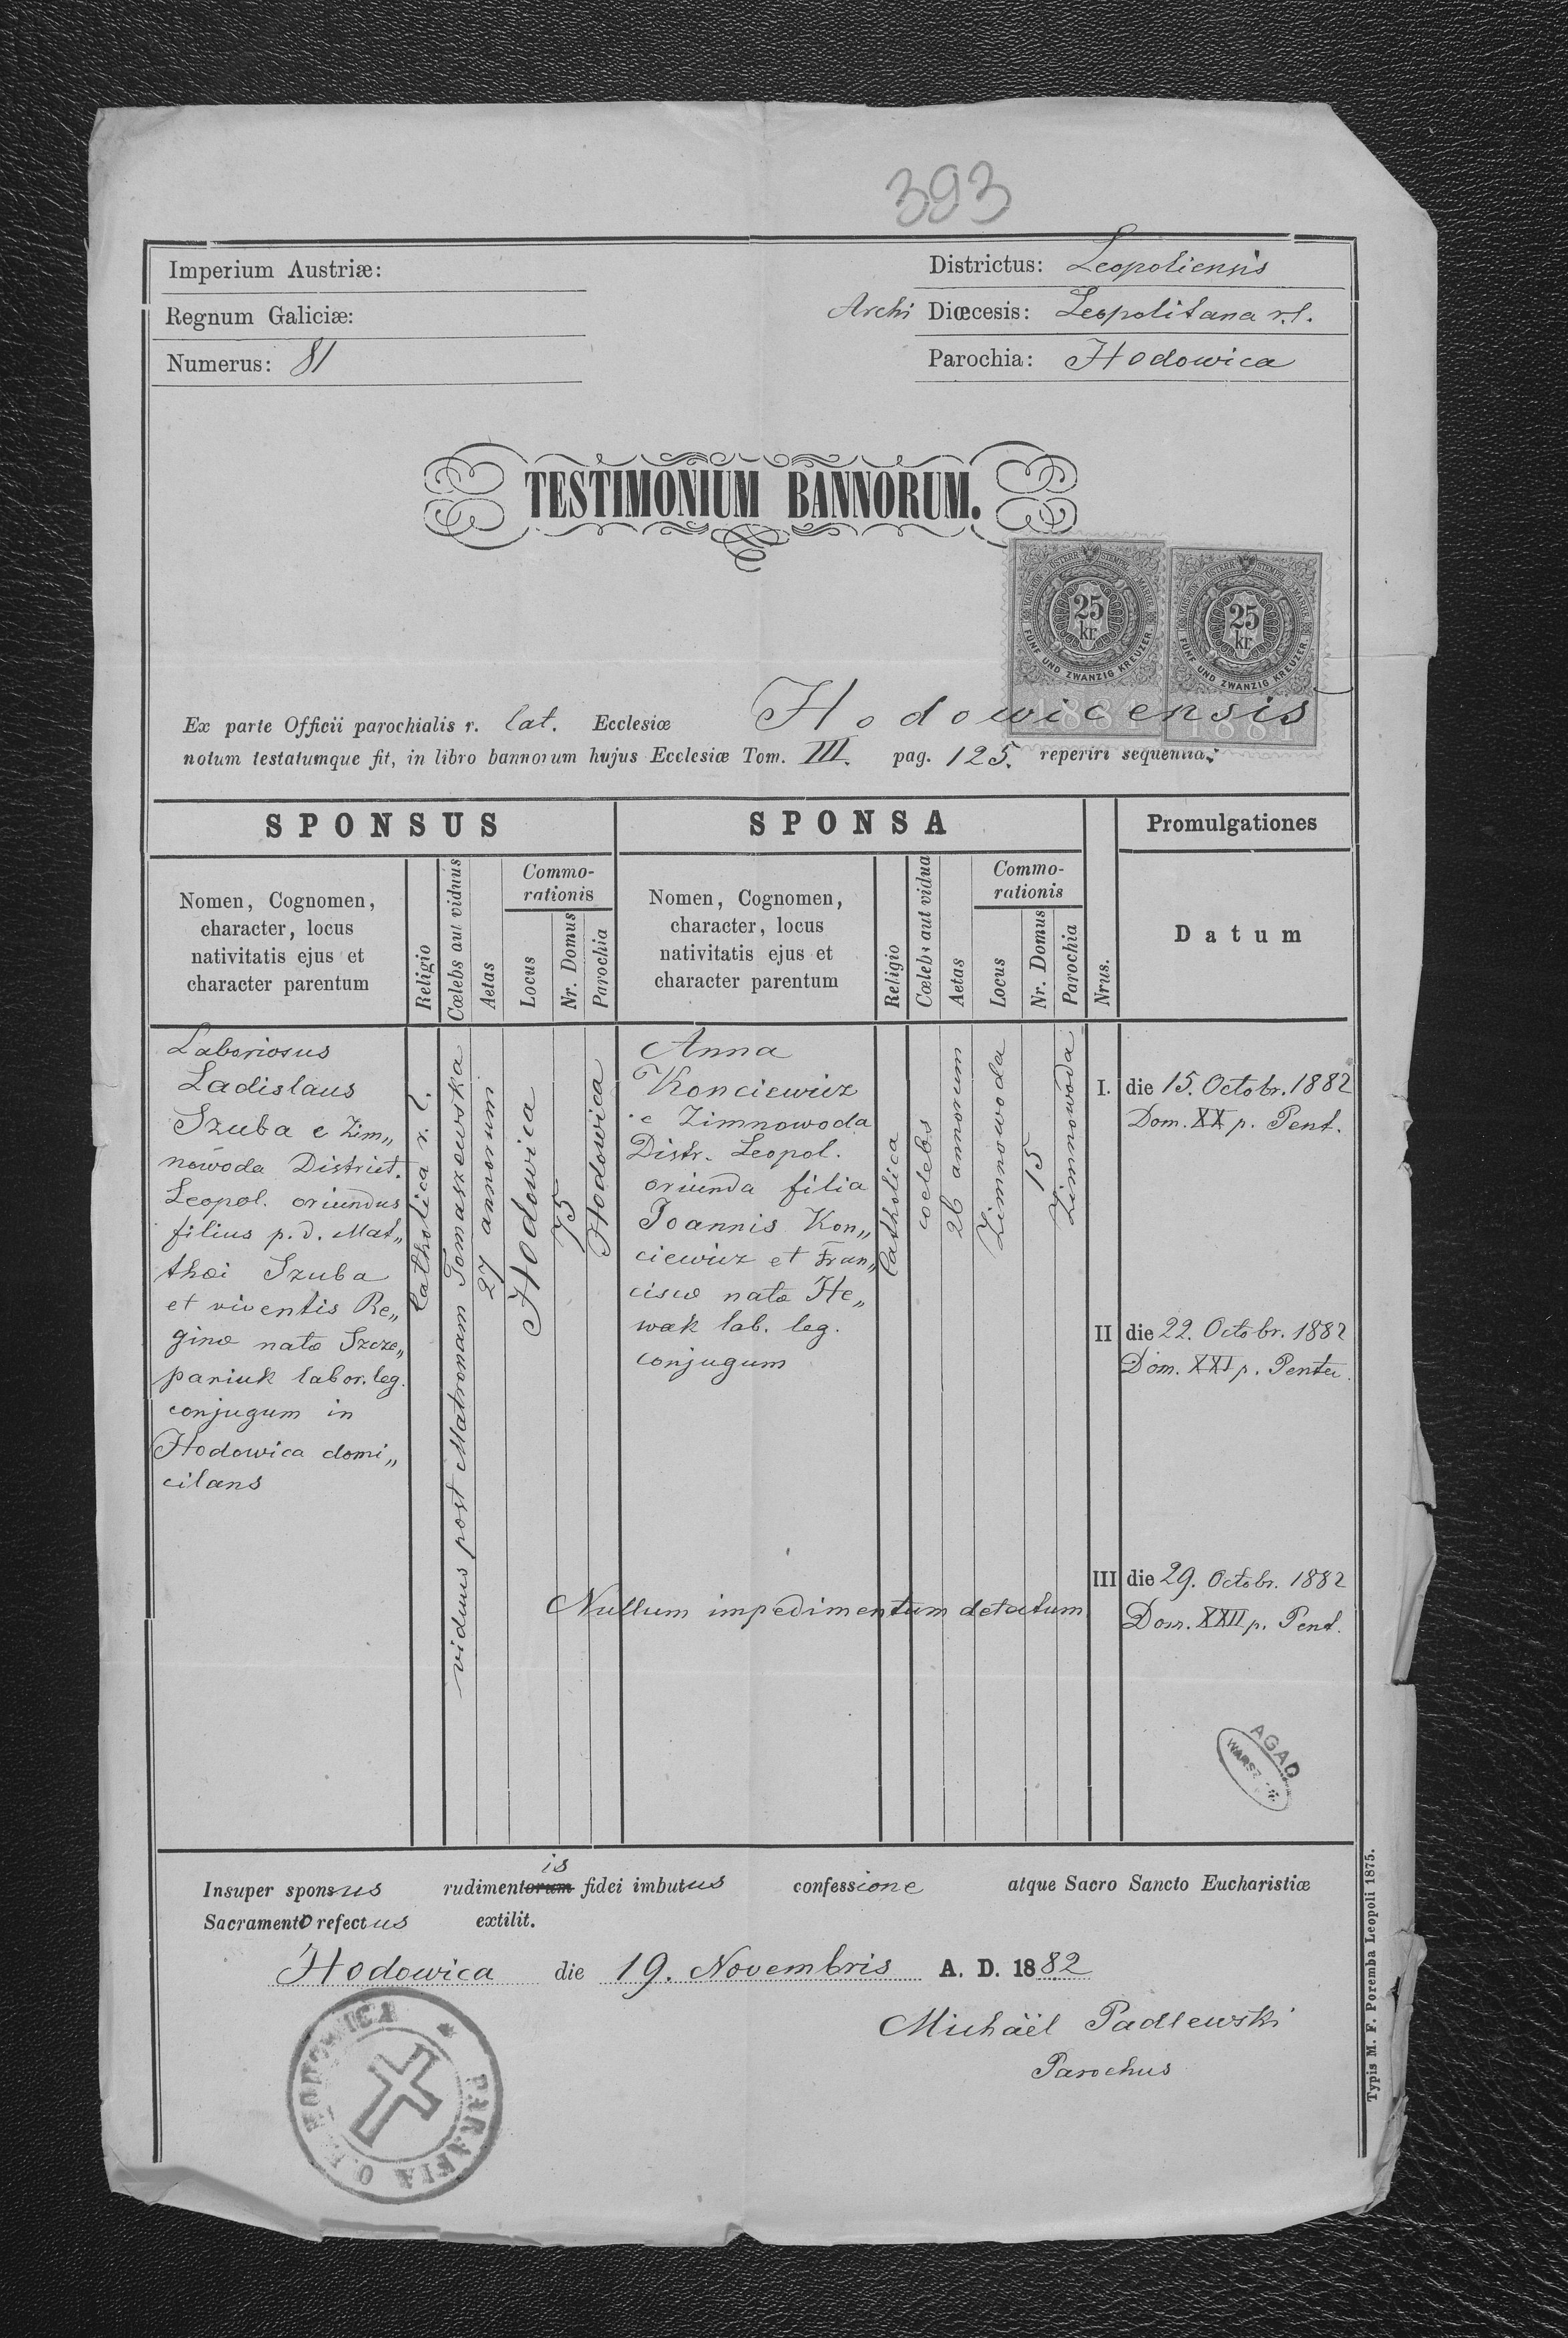 393
Imperium Austriæ:
Regnum Galiciæ:
Numerus: 81
Districtus: Leopoliensis
Archi Diœcesis: Leopolitana r. l.
Parochia: Hodowica
TESTIMONIUM BANNORUM.
KAIS. KÖN. ÖSTERR. STEMPEL MARKE
25
kr
FÜNF UND ZWANZIG KREUZER
1881
KAIS. KÖN. ÖSTERR. STEMPEL MARKE
25
kr
FÜNF UND ZWANZIG KREUZER.
1881
Ex parte Officii parochialis r. lat. Ecclesiæ Hodowicensis
notum testatumque fit, in libro bannorum hujus Ecclesiæ Tom. III. pag. 125. reperiri sequentia:
SPONSUS
Nomen, Cognomen,
character, locus
nativitatis ejus et
character parentum
Religio
Cœlebs aut viduus
Aetas
Commo-
rationis
Locus
Nr. Domus
Parochia
Laboriosus
Ladislaus
Szuba e Zim„
nowoda District.
Leopol. oriundus
filius p. d. Mat„
thæi Szuba
et viventis Re„
ginæ natæ Szcze„
paniuk labor. leg.
conjugum in
Hodowica domi„
cilans
Catholica r. l.
viduus post Matronam Tomaszewska
27 annorum
Hodowica
75
Hodowica
SPONSA
Nomen, Cognomen,
character, locus
nativitatis ejus et
character parentum
Religio
Cœlebs aut vidua
Aetas
Commo-
rationis
Locus
Nr. Domus
Parochia
Anna
Konciewicz
e Zimnowoda
Distr. Leopol.
oriunda filia
Joannis Kon„
ciewicz et Fran„
ciscæ natæ He„
wak lab. leg.
conjugum
Catholica
coelebs
26 annorum
Zimnowoda
15
Zimnowoda
Nrus.
Promulgationes
Datum
I. die 15. Octobr. 1882
Dom. XX p. Pent.
II die 22. Octobr. 1882
Dom. XXI p. Pente.
III die 29. Octobr. 1882
Dom. XXII p. Pent.
Nullum impedimentum detectum
AGAD
WARSZ
is
Insuper sponsus rudimentorum fidei imbutus confessione atque Sacro Sancto Eucharistiæ
Sacramento refectus extitit.
Hodowica die 19. Novembris A. D. 1882
Michaël Padlewski
Parochus
PARAFIA O. Ł. HODOWICA
Typis M. F. Poremba Leopoli 1875.